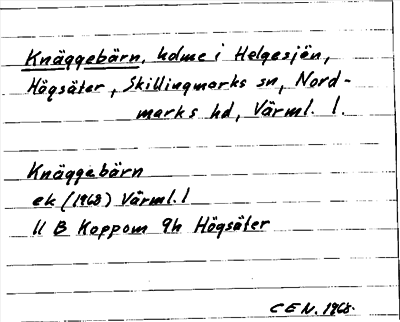 Knäggebärn, holme i Helgesjön,
Högsäter, Skillingmarks sn, Nord-
marks hd, Värml. l.
Knäggebärn
ek (1968) Värml. l
11 B Koppom 9h Högsäter
C E N. 1968.